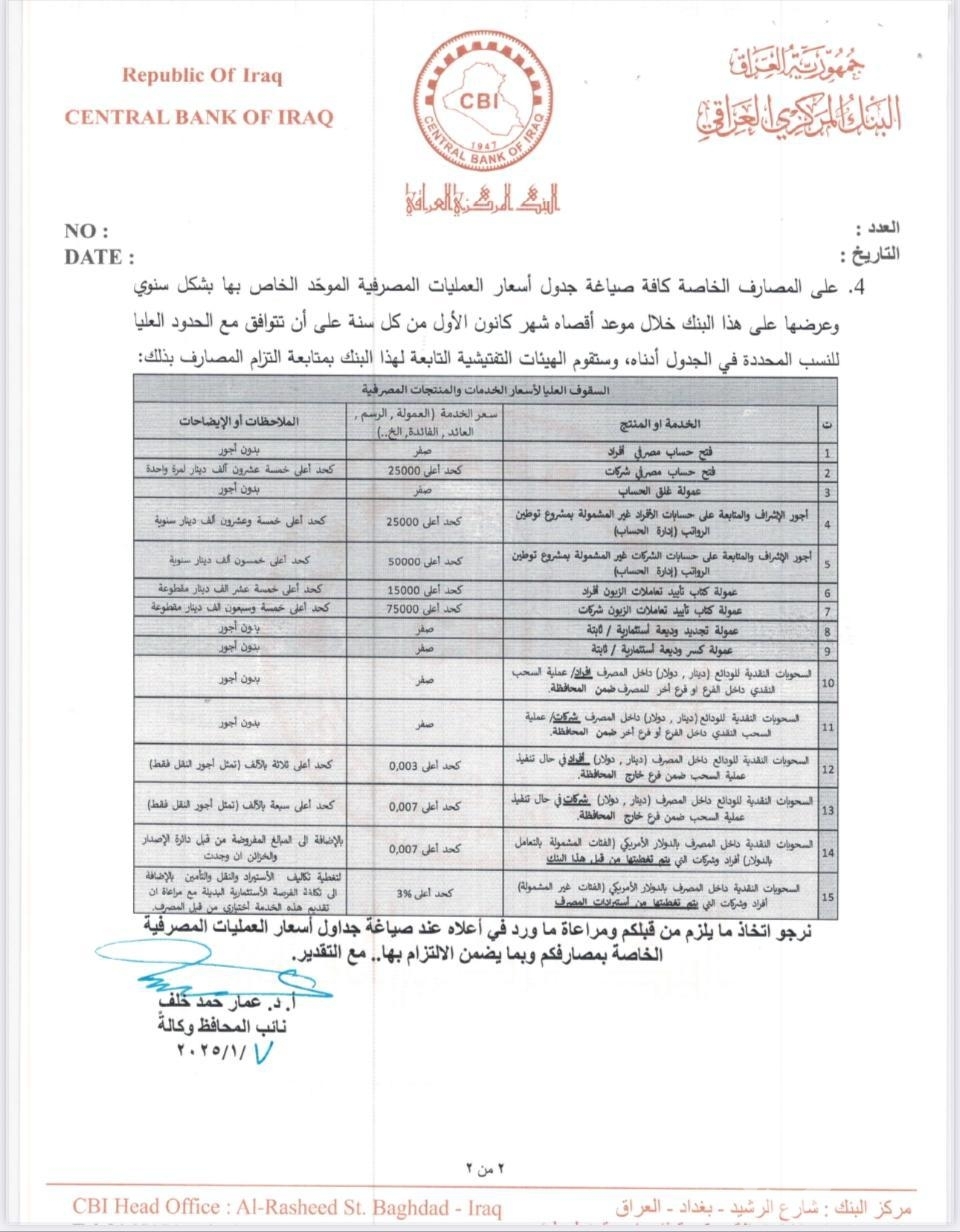 Republic Of Iraq
CENTRAL BANK OF IRAQ
CBI
1947
CENTRAL BANK OF IRAQ
البنك المركزي العراقي
جمهورية العراق
البنك المركزي العراقي
NO :
DATE :
العدد :
التاريخ :
4. على المصارف الخاصة كافة صياغة جدول أسعار العمليات المصرفية الموحّد الخاص بها بشكل سنوي
وعرضها على هذا البنك خلال موعد أقصاه شهر كانون الأول من كل سنة على أن تتوافق مع الحدود العليا
للنسب المحددة في الجدول أدناه، وستقوم الهيئات التفتيشية التابعة لهذا البنك بمتابعة التزام المصارف بذلك:
السقوف العليا لأسعار الخدمات والمنتجات المصرفية
ت الخدمة او المنتج سعر الخدمة (العمولة , الرسم , العائد , الفائدة, الخ..) الملاحظات أو الإيضاحات
1 فتح حساب مصرفي أفراد صفر بدون أجور
2 فتح حساب مصرفي شركات كحد أعلى 25000 كحد أعلى خمسة عشرون ألف دينار لمرة واحدة
3 عمولة غلق الحساب صفر بدون أجور
4 أجور الإشراف والمتابعة على حسابات الأفراد غير المشمولة بمشروع توطين
الرواتب (إدارة الحساب) كحد أعلى 25000 كحد أعلى خمسة وعشرون ألف دينار سنوية
5 أجور الإشراف والمتابعة على حسابات الشركات غير المشمولة بمشروع توطين
الرواتب (إدارة الحساب) كحد أعلى 50000 كحد أعلى خمسون ألف دينار سنوية
6 عمولة كتاب تأييد تعاملات الزبون أفراد كحد أعلى 15000 كحد أعلى خمسة عشر الف دينار مقطوعة
7 عمولة كتاب تأييد تعاملات الزبون شركات كحد أعلى 75000 كحد أعلى خمسة وسبعون الف دينار مقطوعة
8 عمولة تجديد وديعة أستثمارية / ثابتة صفر بدون أجور
9 عمولة كسر وديعة أستثمارية / ثابتة صفر بدون أجور
10 السحوبات النقدية للودائع (دينار , دولار) داخل المصرف افراد/ عملية السحب
النقدي داخل الفرع او فرع أخر للمصرف ضمن المحافظة. صفر بدون أجور
11 السحوبات النقدية للودائع (دينار , دولار) داخل المصرف شركات/ عملية
السحب النقدي داخل الفرع أو فرع أخر ضمن المحافظة. صفر بدون أجور
12 السحوبات النقدية للودائع داخل المصرف (دينار , دولار) أفراد في حال تنفيذ
عملية السحب ضمن فرع خارج المحافظة. كحد أعلى 0,003 كحد أعلى ثلاثة بالألف (تمثل أجور النقل فقط)
13 السحوبات النقدية للودائع داخل المصرف (دينار , دولار) شركات في حال تنفيذ
عملية السحب ضمن فرع خارج المحافظة. كحد أعلى 0,007 كحد أعلى سبعة بالألف (تمثل أجور النقل فقط)
14 السحوبات النقدية داخل المصرف بالدولار الأمريكي (الفئات المشمولة بالتعامل
بالدولار) أفراد وشركات التي يتم تغطيتها من قبل هذا البنك كحد أعلى 0,007 بالإضافة الى المبالغ المفروضة من قبل دائرة الإصدار
والخزائن ان وجدت
15 السحوبات النقدية داخل المصرف بالدولار الأمريكي (الفئات غير المشمولة)
أفراد وشركات التي يتم تغطيتها من أستيرادات المصرف كحد أعلى 3% لتغطية تكاليف الأستيراد والنقل والتأمين بالإضافة
الى تكلفة الفرصة الأستثمارية البديلة مع مراعاة ان
تقديم هذه الخدمة أختياري من قبل المصرف.
نرجو اتخاذ ما يلزم من قبلكم ومراعاة ما ورد في أعلاه عند صياغة جداول أسعار العمليات المصرفية
الخاصة بمصارفكم وبما يضمن الالتزام بها.. مع التقدير.
أ. د. عمار حمد خلف
نائب المحافظ وكالةً
٢٠٢٥/١/٧
٢ من ٢
CBI Head Office : Al-Rasheed St. Baghdad - Iraq
مركز البنك : شارع الرشيد - بغداد - العراق